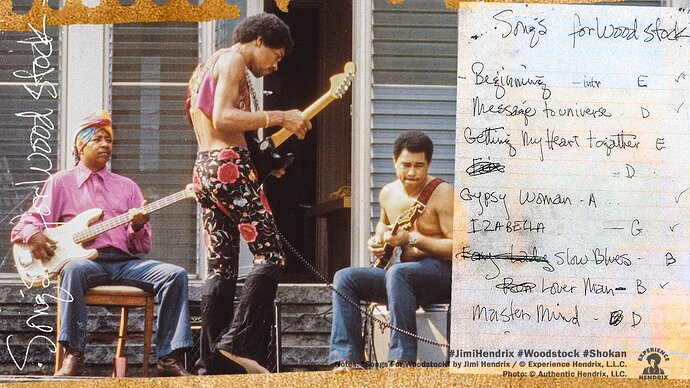 Song's for Wood Stock
Song's for Wood Stock
- Beginning - intr E ✓
Message to universe - D ✓
Getting My Heart together E
- D -
Gypsy Woman - A ✓
IZABELLA - G ✓
Foxy Lady Slow Blues - B
Lover Man - B ✓
Master Mind - D
#JimiHendrix #Woodstock #Shokan
Notes: "Songs For Woodstock" by Jimi Hendrix / © Experience Hendrix, L.L.C.
Photo: © Authentic Hendrix, LLC.
EXPERIENCE
HENDRIX